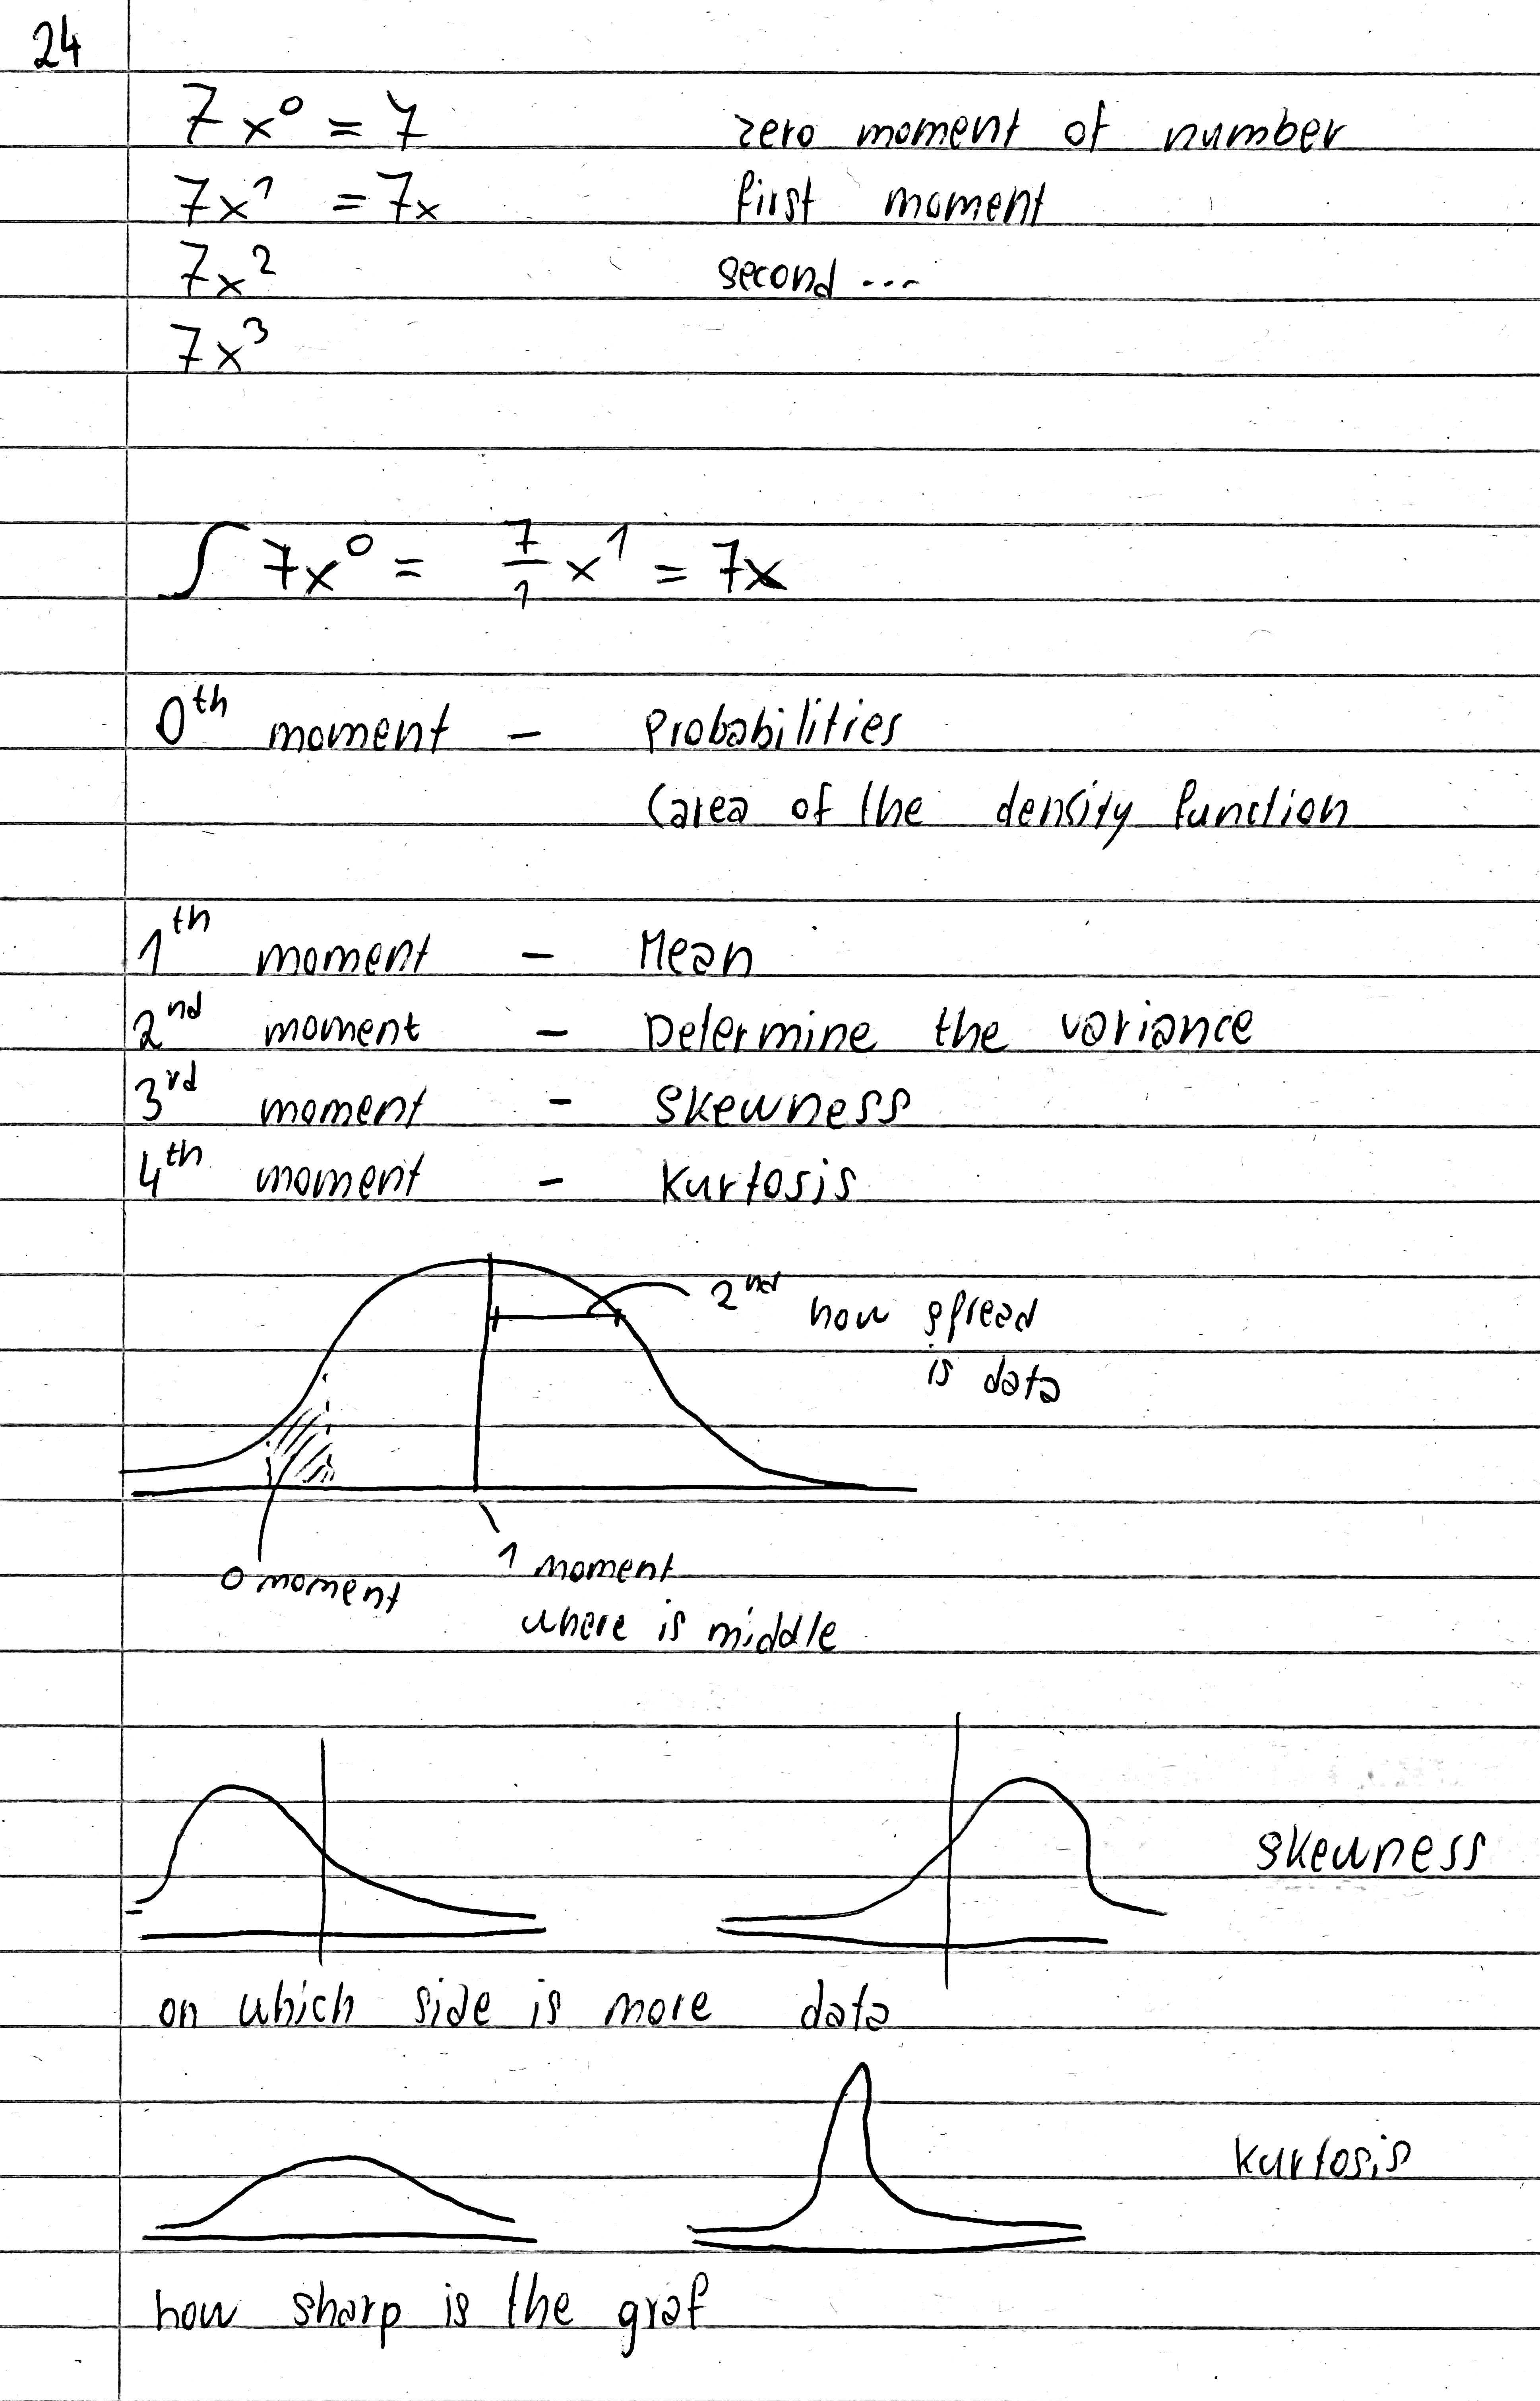 24
7x⁰ = 7 zero moment of number
7x¹ = 7x first moment
7x² second ...
7x³
∫ 7x⁰ = 7/1 x¹ = 7x
0th moment - Probabilities
(area of the density function
1th moment - Mean
2nd moment - Determine the variance
3rd moment - skewness
4th moment - kurtosis
2nd how spread
is data
0 moment
1 moment
where is middle
skewness
on which side is more data
kurtosis
how sharp is the graf